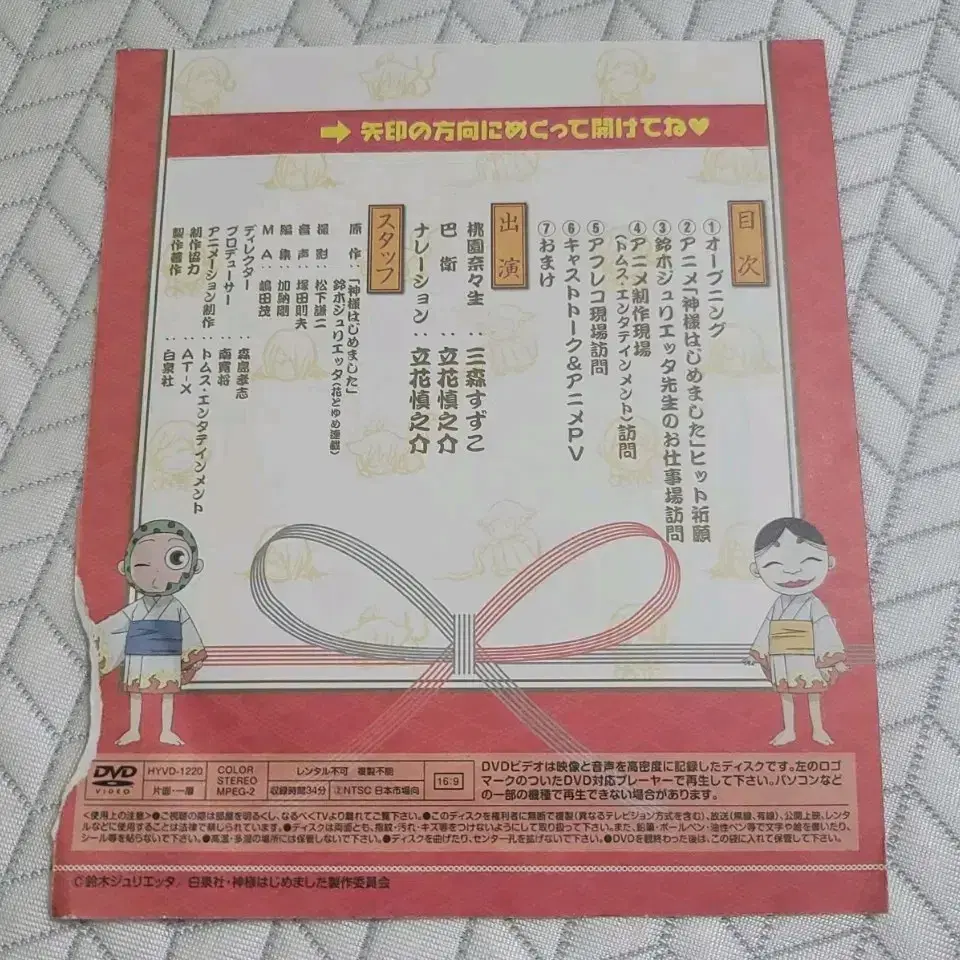 ➡ 矢印の方向にめくって開けてね♥
目次
①オープニング
②アニメ「神様はじめました」ヒット祈願
③鈴木ジュリエッタ先生のお仕事場訪問
④アニメ制作現場
(トムス・エンタテインメント)訪問
⑤アフレコ現場訪問
⑥キャストトーク&アニメPV
⑦おまけ
出演
桃園奈々生：三森すずこ
巴衛：立花慎之介
ナレーション：立花慎之介
スタッフ
原作：「神様はじめました」
鈴木ジュリエッタ(花とゆめ連載)
撮影：松下謙二
音声：塚田則夫
編集：加納剛
MA：嶋田茂
ディレクター：森島孝志
プロデューサー：南寛将
アニメーション制作：トムス・エンタテインメント
制作協力：AT-X
製作著作：白泉社
DVD VIDEO
HYVD-1220
片面・一層
COLOR
STEREO
MPEG-2
レンタル不可 複製不能
収録時間34分
2 NTSC 日本市場向
16:9
DVDビデオは映像と音声を高密度に記録したディスクです。左のロゴ
マークのついたDVD対応プレーヤーで再生して下さい。パソコンなど
の一部の機種で再生できない場合があります。
<使用上の注意>●ご視聴の際は部屋を明るくし、なるべくTVより離れてご覧下さい。●このディスクを権利者に無断で複製(異なるテレビジョン方式を含む)、放送(無線、有線)、公開上映、レンタ
ルなどに使用することは法律で禁じられています。●ディスクは両面とも、指紋・汚れ・キズ等をつけないようにして取り扱って下さい。また、鉛筆・ボールペン・油性ペン等で文字や絵を書いたり、
シール等を貼らないで下さい。●高温・多湿の場所には保管しないで下さい。●ディスクを曲げたり、センター孔を拡げないで下さい。●DVDを観終わった後は、この袋に入れて保管して下さい。
©鈴木ジュリエッタ/白泉社・神様はじめました製作委員会